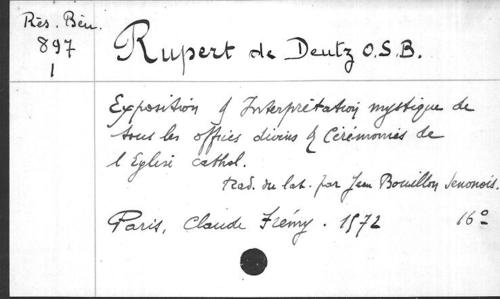 Rés. Bén.
897
1
Rupert de Deutz O.S.B.
Exposition & Interprétation mystique de
tous les offices divins & Cérémonies de
l'Eglise cathol.
trad. du lat. par Jean Bouillon Senonois.
Paris, Claude Frémy. 1572 16°